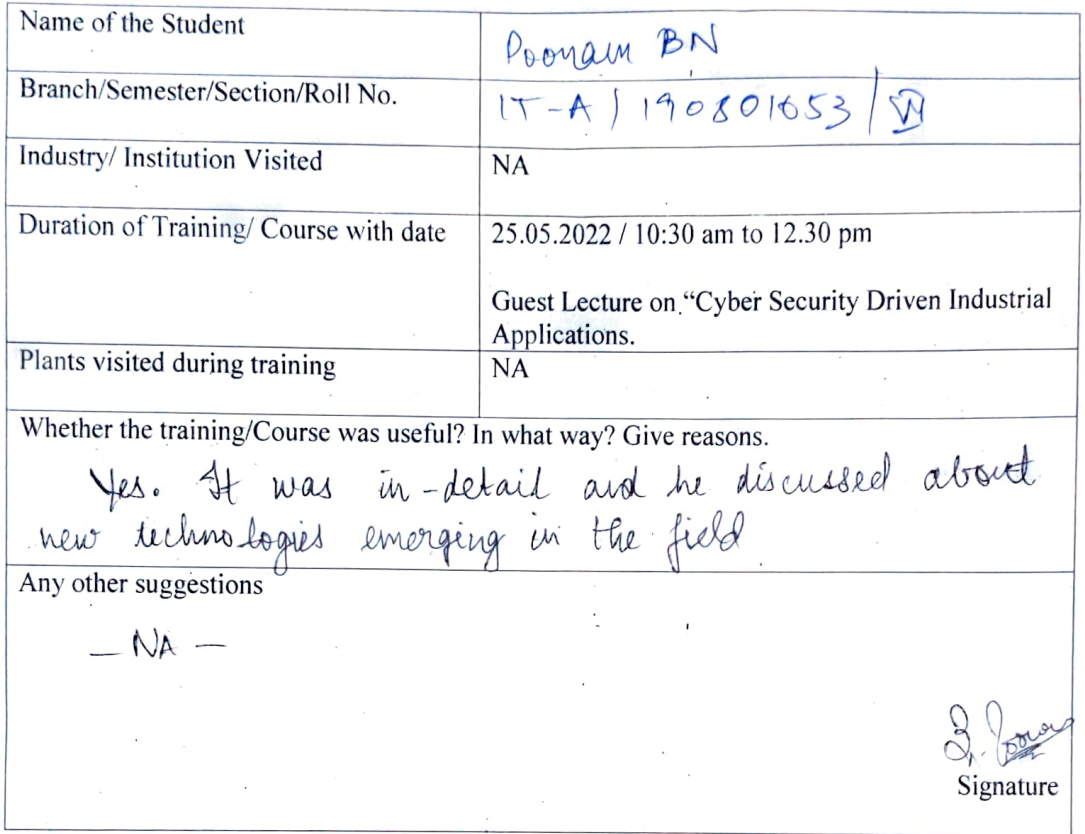 Name of the Student
Poonam BN
Branch/Semester/Section/Roll No.
IT-A / 190801653 / VI
Industry/ Institution Visited
NA
Duration of Training/ Course with date
25.05.2022 / 10:30 am to 12.30 pm
Guest Lecture on “Cyber Security Driven Industrial
Applications.
Plants visited during training
NA
Whether the training/Course was useful? In what way? Give reasons.
Yes. It was in-detail and he discussed about
new technologies emerging in the field
Any other suggestions
— NA —
Signature